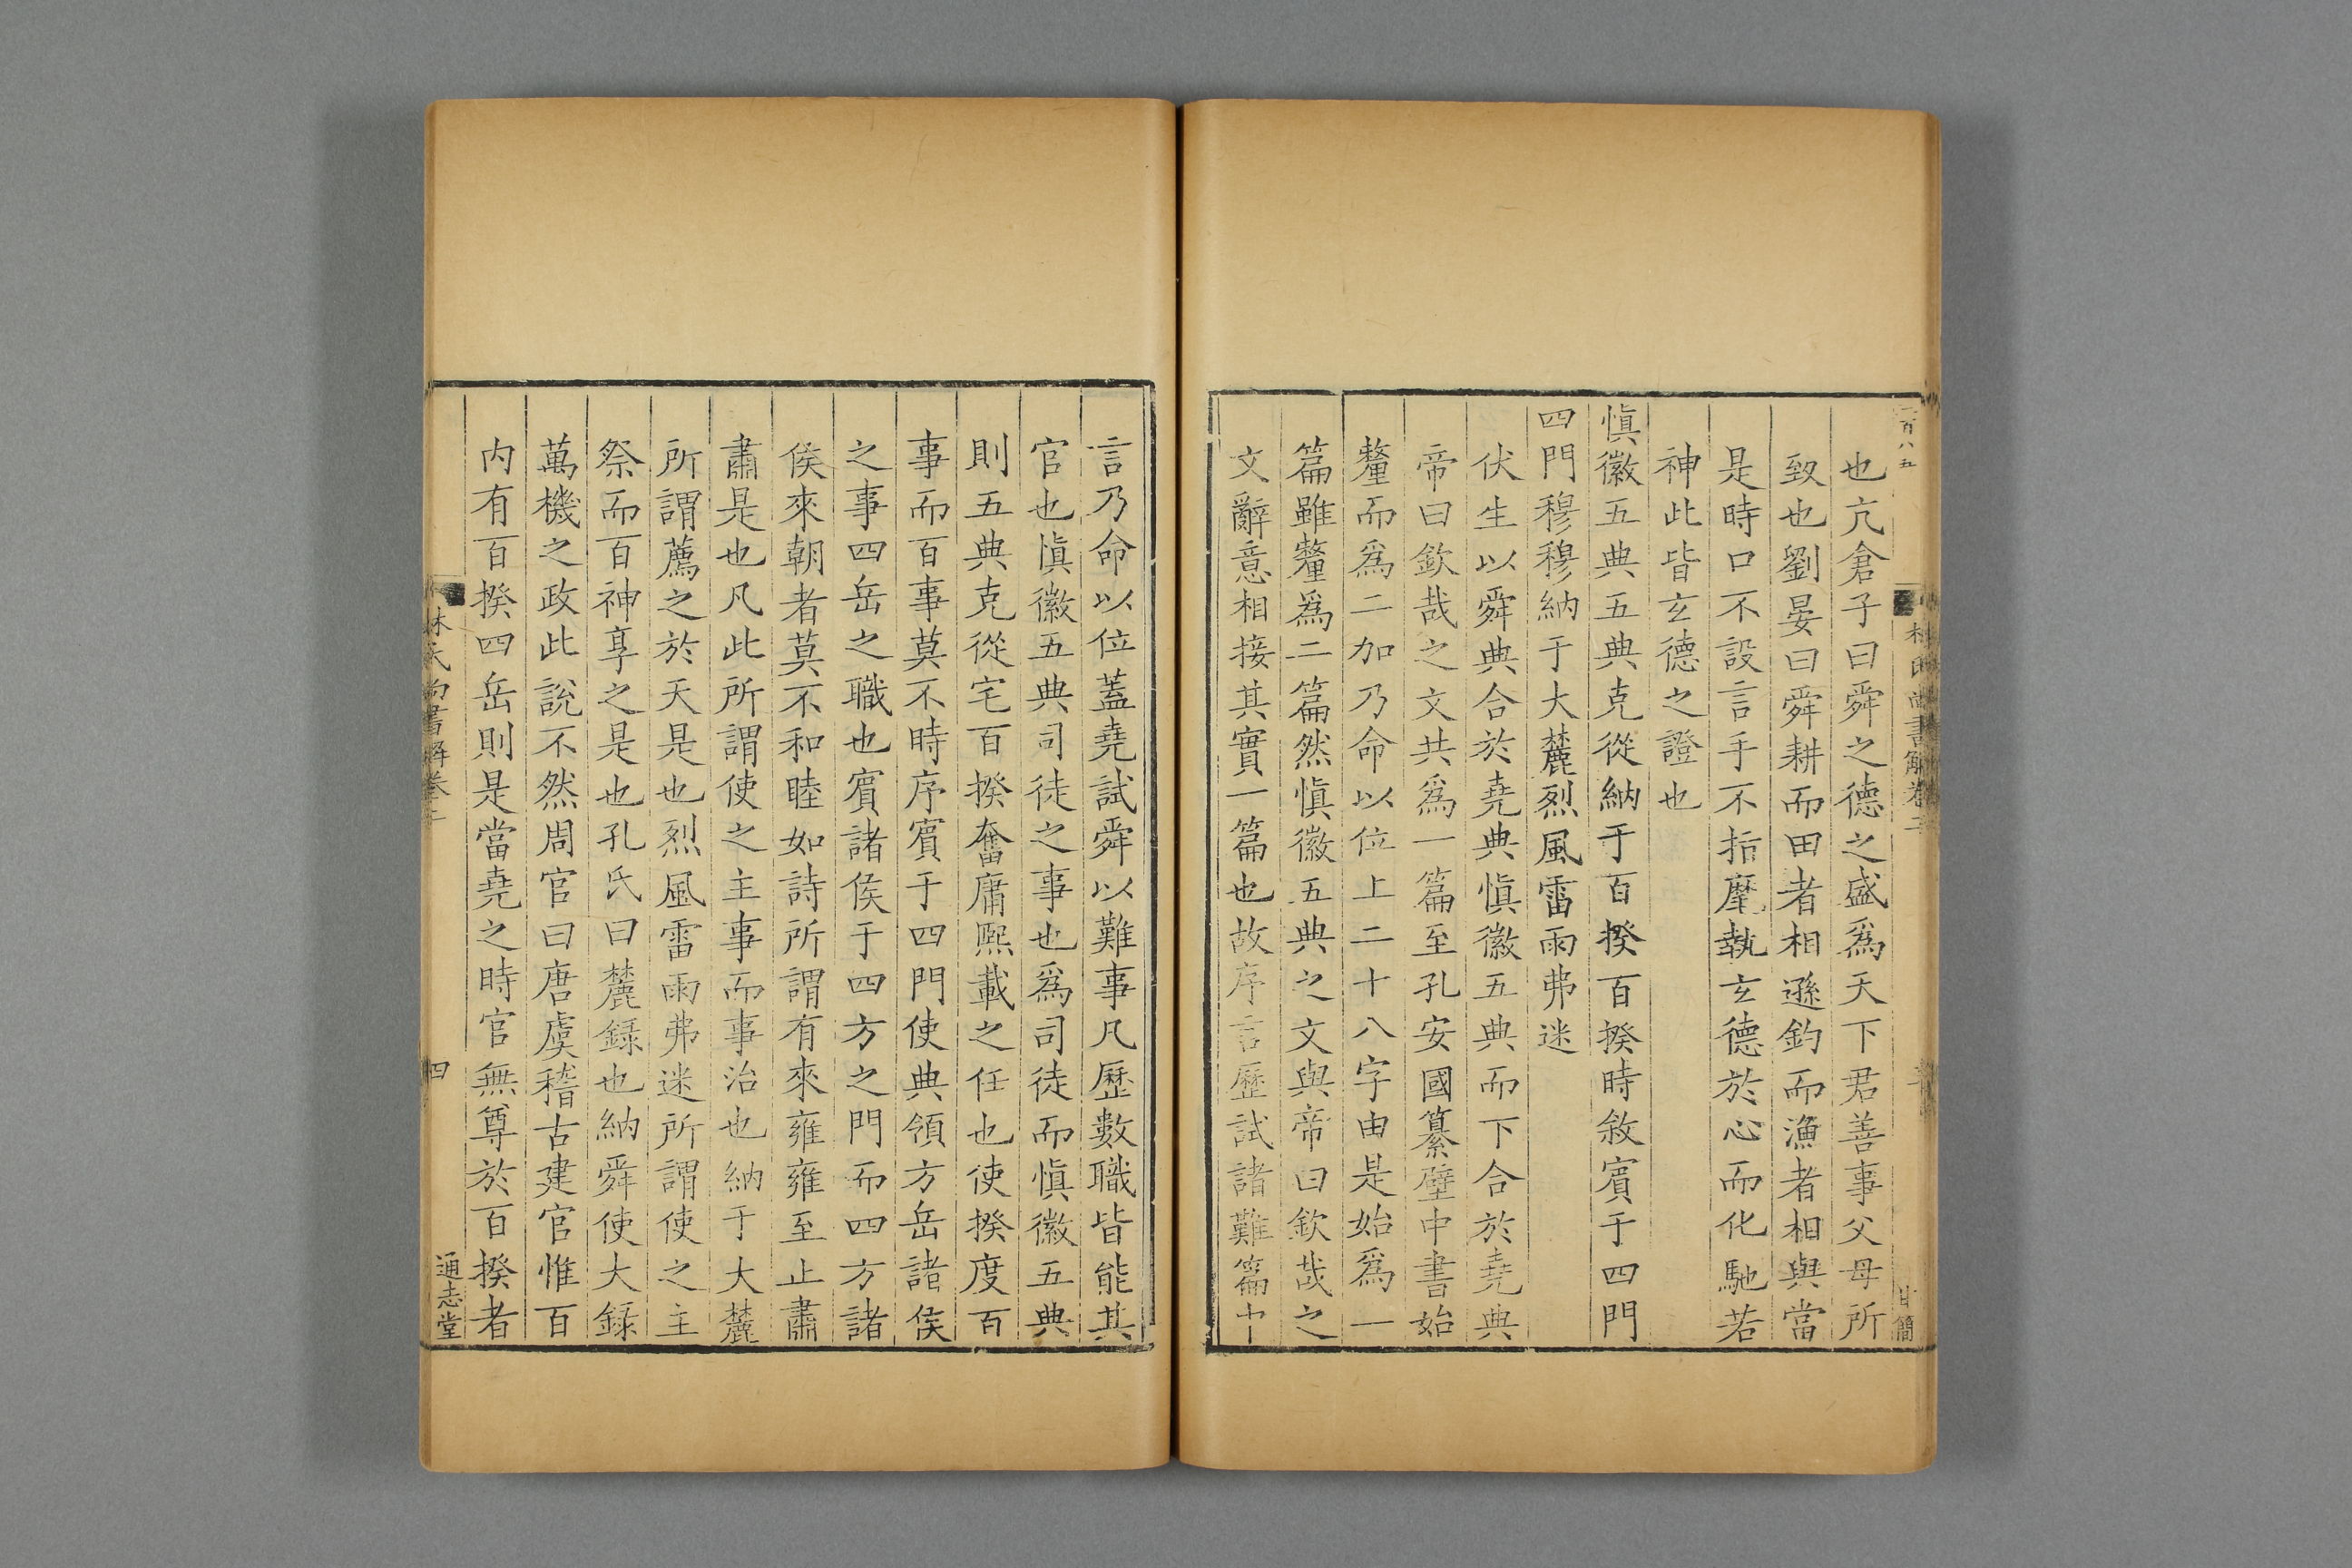 也亢倉子曰舜之德之盛爲天下君善事父母所
致也劉晏曰舜耕而田者相遜釣而漁者相與當
是時口不設言手不指麾執玄德於心而化馳若
神此皆玄德之證也
愼徽五典五典克從納于百揆百揆時敘賓于四門
四門穆穆納于大麓烈風雷雨弗迷
伏生以舜典合於堯典愼徽五典而下合於堯典
帝曰欽哉之文共爲一篇至孔安國纂壁中書始
釐而爲二加乃命以位上二十八字由是始爲一
篇雖釐爲二篇然愼徽五典之文與帝曰欽哉之
文辭意相接其實一篇也故序言歷試諸難篇中
言乃命以位蓋堯試舜以難事凡歷數職皆能其
官也愼徽五典司徒之事也爲司徒而愼徽五典
則五典克從宅百揆奮庸熙載之任也使揆度百
事而百事莫不時序賓于四門使典領方岳諸侯
之事四岳之職也賓諸侯于四方之門而四方諸
侯來朝者莫不和睦如詩所謂有來雍雍至止肅
肅是也凡此所謂使之主事而事治也納于大麓
所謂薦之於天是也烈風雷雨弗迷所謂使之主
祭而百神享之是也孔氏曰麓錄也納舜使大錄
萬機之政此說不然周官曰唐虞稽古建官惟百
內有百揆四岳則是當堯之時官無尊於百揆者
林氏尚書解卷二
四
通志堂